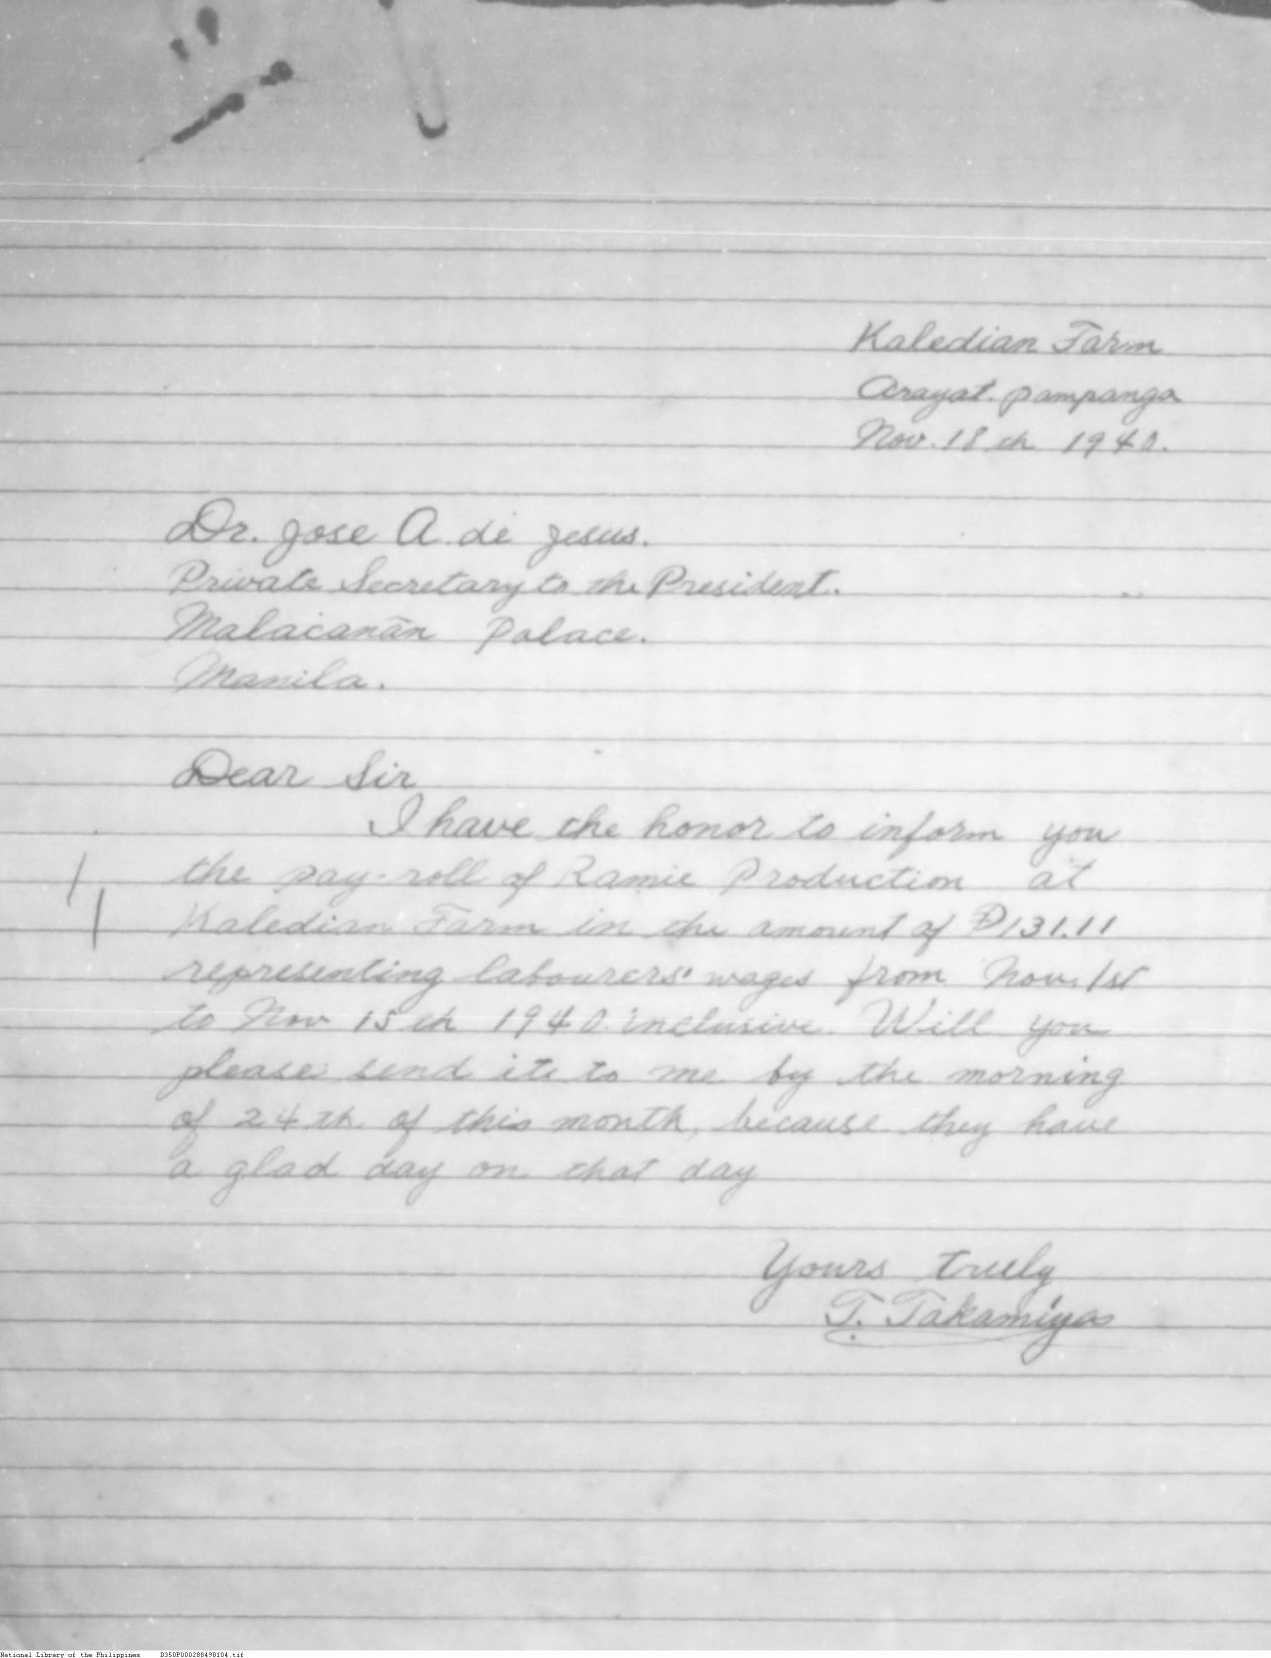 Kaledian Farm
Arayat. Pampanga
Nov. 18 th 1940.
Dr. Jose A. de Jesus.
Private Secretary to the President.
Malacanãn Palace.
Manila.
Dear Sir
I have the honor to inform you
the pay-roll of Ramie Production at
Kaledian Farm in the amount of ₱131.11
representing labourers' wages from Nov. 1st
to Nov 15 th 1940 inclusive. Will you
please send it to me by the morning
of 24 th of this month, because they have
a glad day on that day
Yours truly
T. Takamiya
National Library of the Philippines D350P000288498104.tif